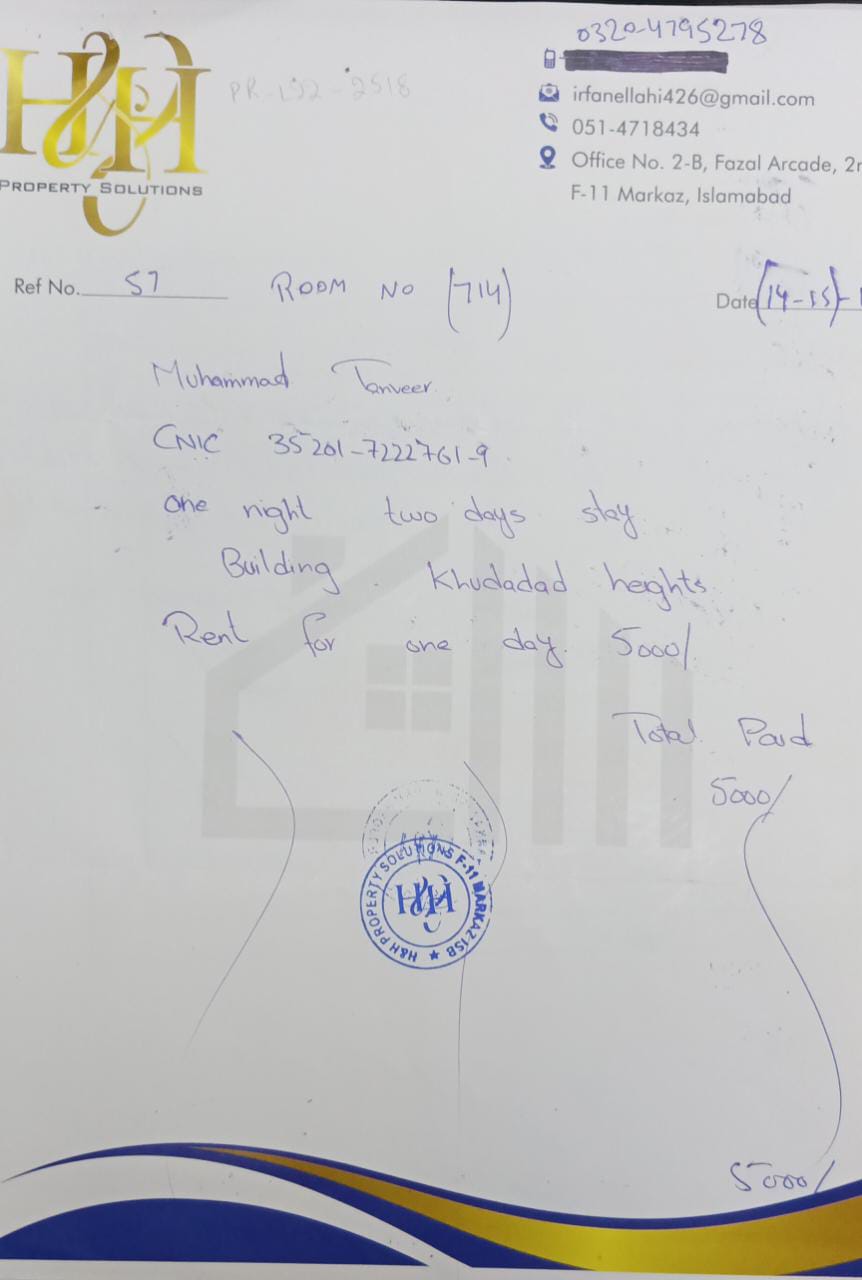 0320-4795278
H&H
PR-192-2518
irfanellahi426@gmail.com
051-4718434
PROPERTY SOLUTIONS
Office No. 2-B, Fazal Arcade, 2
F-11 Markaz, Islamabad
Ref No. 57 ROOM NO (714) Date (14-15)-
Muhammad Tanveer
CNIC 35201-7222761-9
one night two days stay
Building Khudadad heights
Rent for one day. 5000/
Total Paid
5000/
H&H PROPERTY SOLUTIONS F-11 MARKAZ ISB
H&H
5000/